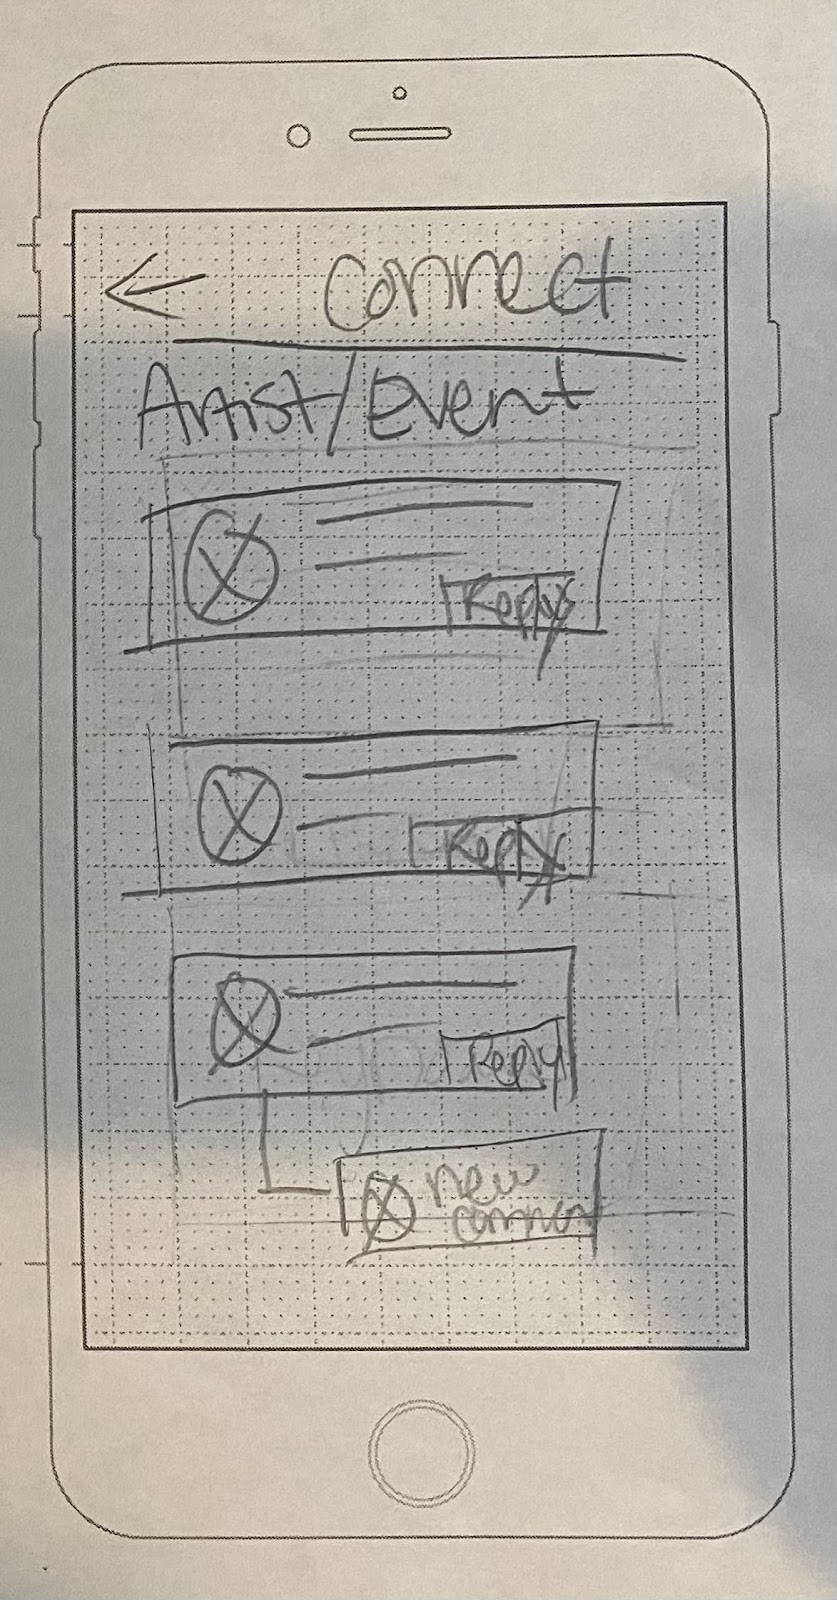 Connect
Artist/Event
Reply
Reply
Reply
new